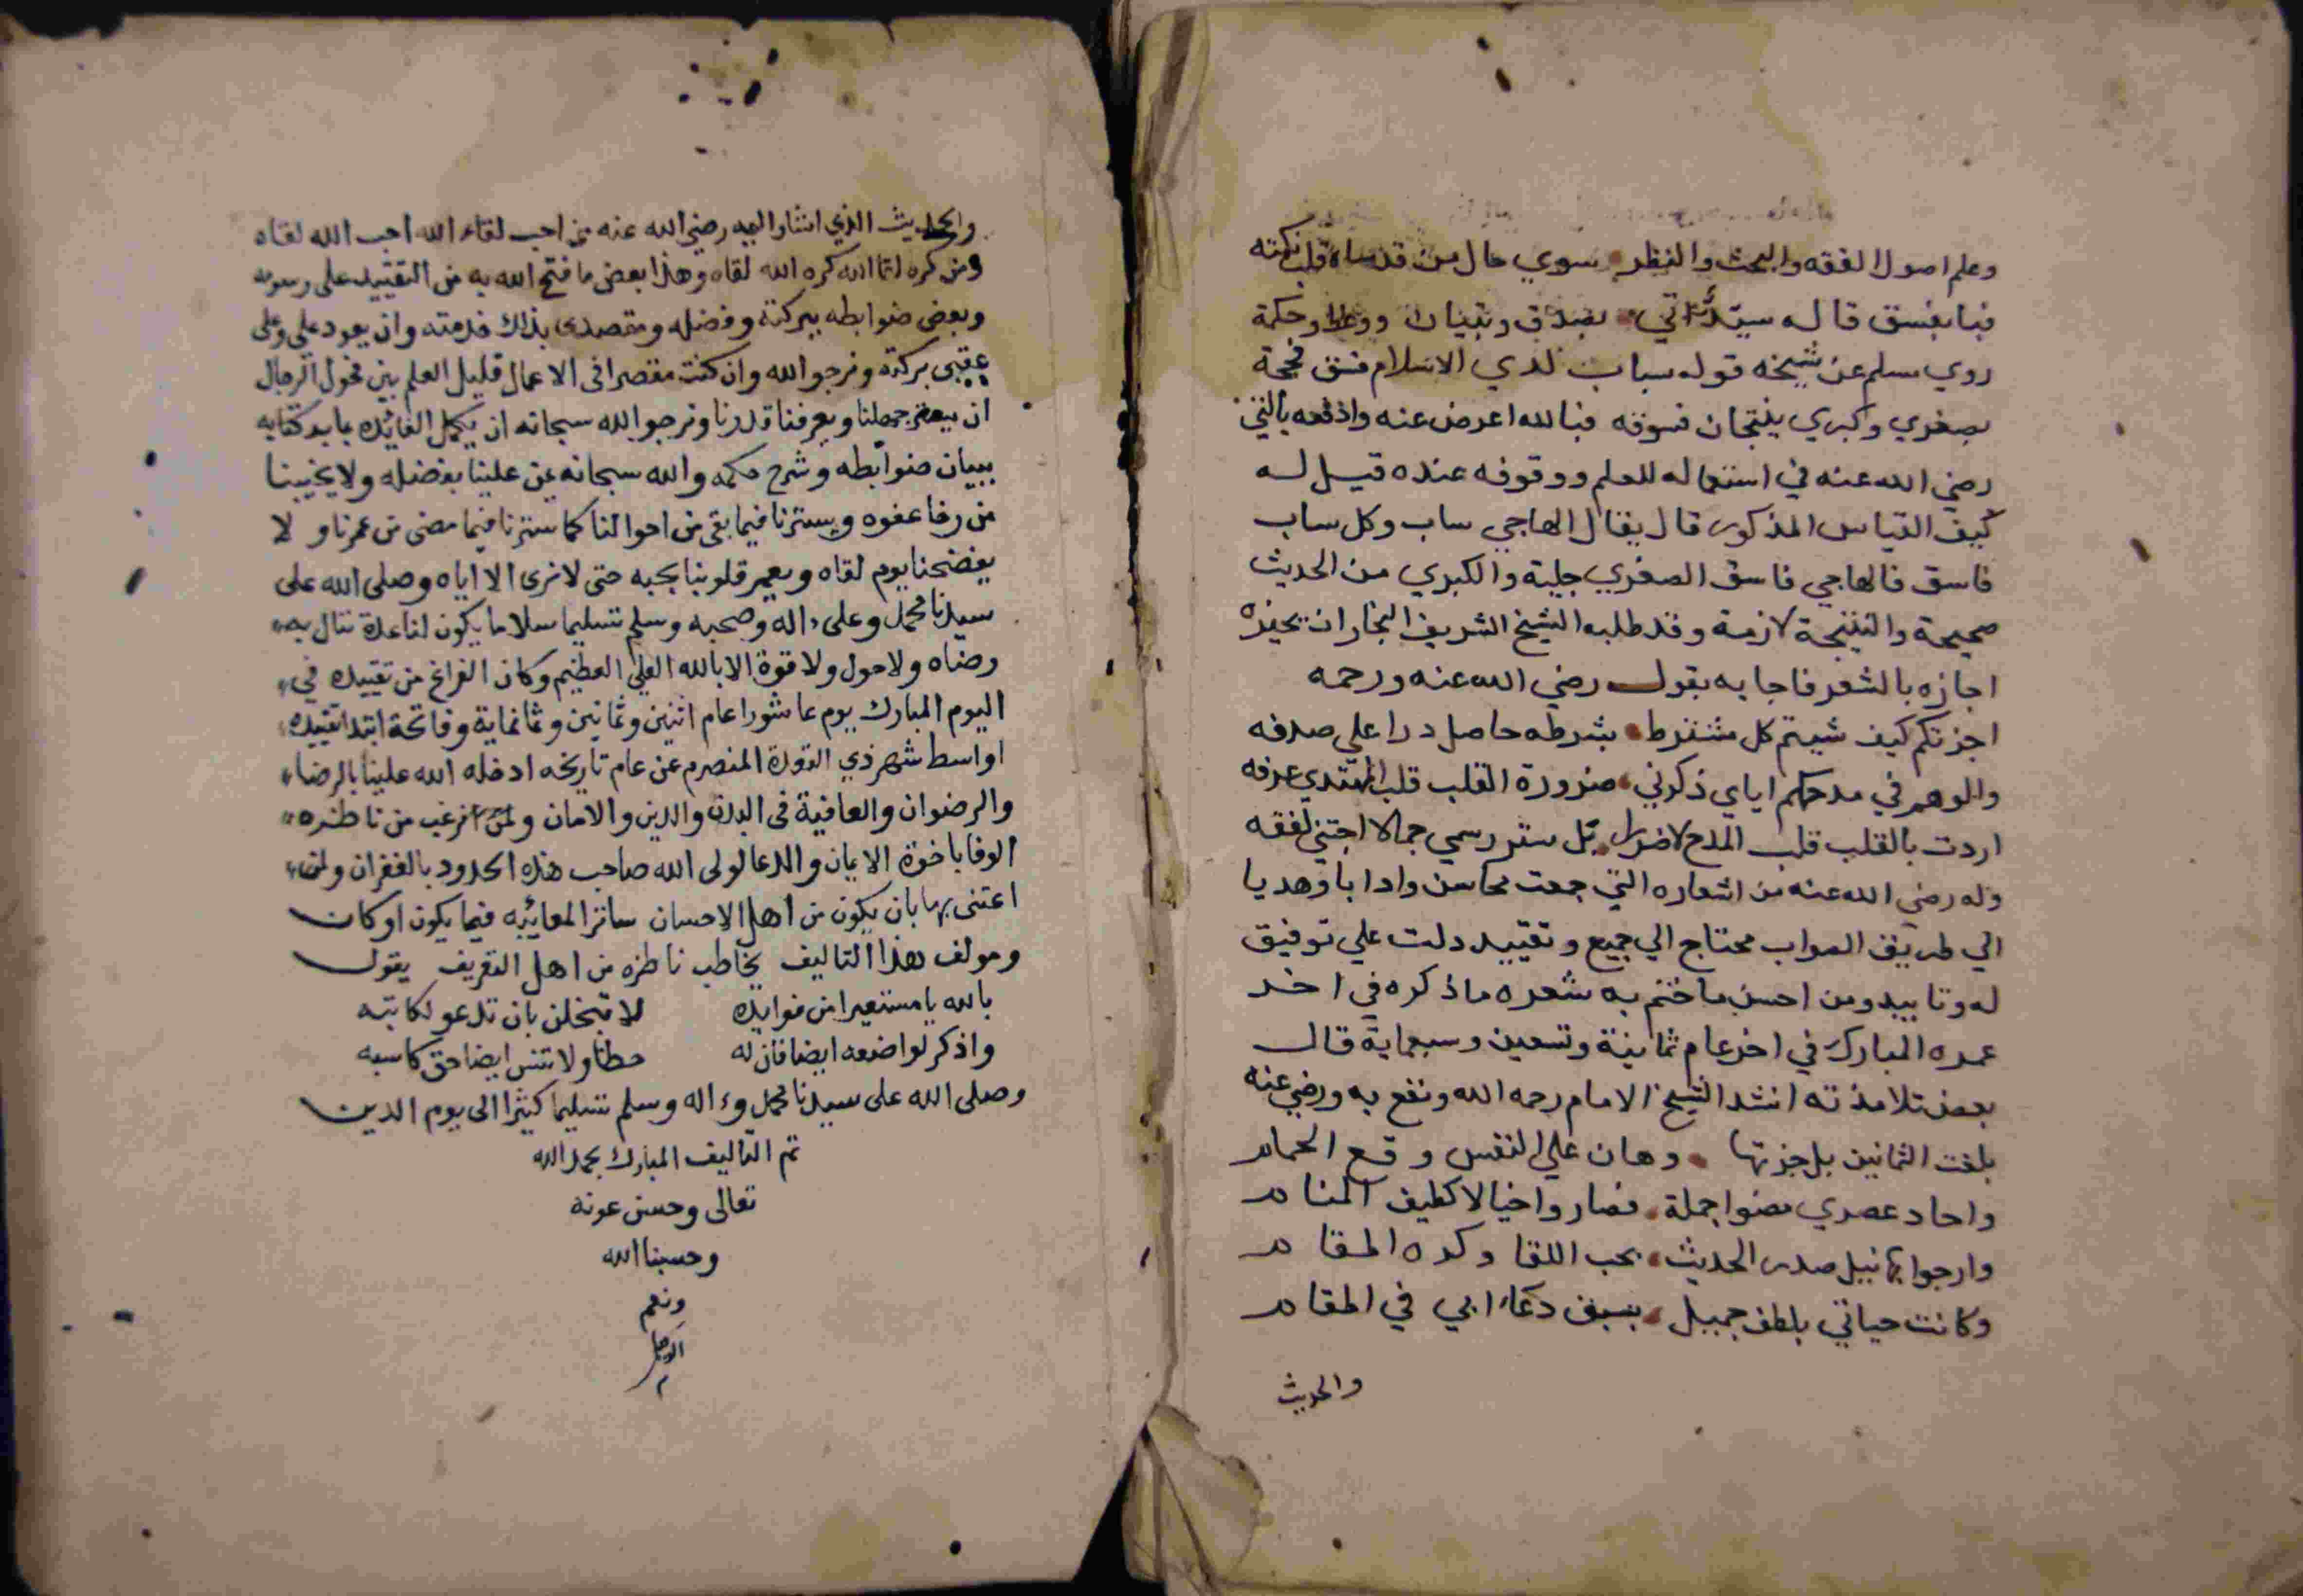 وعلم اصول الفقه والبحث والنظر سوي حال من قد ساء قلب نكته
فبا بفسق قاله سيد بصدق وتبيان ووعظ وحكمة
روي مسلم عن شيخه قوله سباب لدي الاسلام فسق فحجة
بصغري وكبري ينتجان فسوقه فبالله اعرض عنه وادفعه بالتي
رضي الله عنه في استعماله للعلم ووقوفه عنده قيل له
كيف القياس المذكور قال يقال الهاجي ساب وكل ساب
فاسق فالهاجي فاسق الصغري جلية والكبري من الحديث
صحيحة والنتيجة لازمة وقد طلبه الشيخ الشريف النجار ان يجيزه
اجازه بالشعر فاجابه بقوله رضي الله عنه ورحمه
اجزتكم كيف شيتم كل مشترط بشرطه حاصل درا علي صدفه
والوهم في مدحكم اياي ذكرني ضرورة القلب قلب المهتدي عرفه
اردت بالقلب قلب المدح لاضرر بل ستر رسمي جمالا اجتني لفقه
وله رضي الله عنه من اشعاره التي جمعت محاسن وادابا وهديا
الي طريق الصواب محتاج الي جميع وتقييد دلت علي توفيق
له وتاييد ومن احسن ما ختم به شعره ما ذكره في اخر
عمره المبارك في اخر عام ثمانية وتسعين وسبعماية قال
بعض تلامذته انشد الشيخ الامام رحمه الله ونفع به ورضي عنه
بلغت الثمانين بل جزتها وهان علي النفس وقع الحمام
واحاد عصري مضوا جملة فصاروا خيالا كطيف المنام
وارجوا بها نيل صدر الحديث بحب اللقا وكره المقام
وكانت حياتي بلطف جميل بسبق دعاء ابي في المقام
والحديث
والحديث الذي اشار اليه رضي الله عنه من احب لقاء الله احب الله لقاه
ومن كره لقا الله كره الله لقاه وهذا بعض ما فتح الله به من التقييد على رسومه
وبعض ضوابطه ببركته وفضله ومقصدي بذلك خدمته وان يعود علي وعلى
عقبي بركته ونرجو الله وان كنت مقصرا في الاعمال قليل العلم بين فحول الرجال
ان يغفر جهلنا ويعرفنا قدرنا ونرجو الله سبحانه ان يكمل الفائده كتابه
ببيان ضوابطه وشرح حكمه والله سبحانه يمن علينا بفضله ولا يخيبنا
من رضا عفوه ويسترنا فيما بقي من احوالنا كما سترنا فيما مضى من عمرنا ولا
يفضحنا يوم لقاه ويعمر قلوبنا بحبه حتى لا نرى الا اياه وصلى الله على
سيدنا محمد وعلى ءاله وصحبه وسلم تسليما سلاما يكون لنا عدة ننال به
رضاه ولا حول ولا قوة الا بالله العلي العظيم وكان الفراغ من تقييده في
اليوم المبارك يوم عاشورا عام اثنين وثمانين وثمانماية وفاتحة ابتدا تقييده
اواسط شهر ذي القعدة المنصرم عن عام تاريخه ادخله الله علينا بالرضاء
والرضوان والعافية في البدن والدين والامان ارغب من ناظره
الوفا باخوة الايمان والدعا لولى الله صاحب هذه الحدود بالغفران ولمن
اعتنى بها بان يكون من اهل الاحسان ساترا لمعائبه فيما يكون او كان
ومولف هذا التاليف يخاطب ناظره من اهل التعريف يقول
بالله يا مستعيرا من فوايده لا تبخلن بان تدعو لكاتبه
واذكر لواضعه ايضا فان له حظا ولا تنس ايضا حق كاسبه
وصلى الله على سيدنا محمد وءاله وسلم تسليما كثيرا الى يوم الدين
تم التاليف المبارك بحمد الله
تعالى وحسن عونه
وحسبنا الله
ونعم
الوكيل